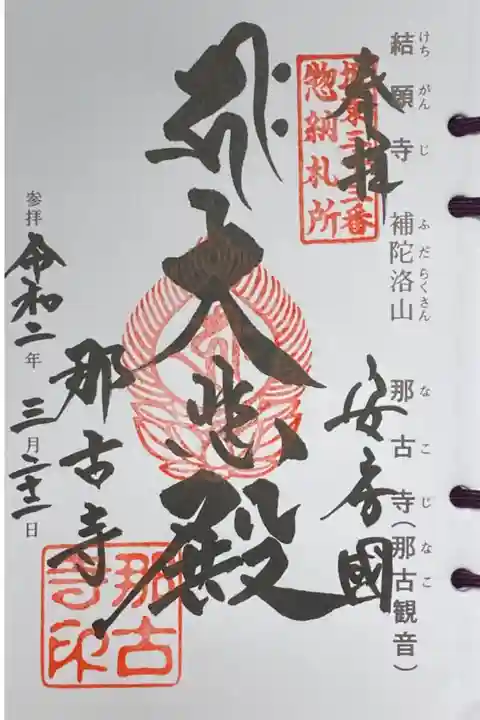 結願寺 補陀洛山 那古寺(那古観音)
けちがんじ ふだらくさん なこじ なこ
奉拝
坂東三十三番
惣納札所
安房國
大悲殿
那古寺
参拝 令和二年 三月二十一日
那古
寺印